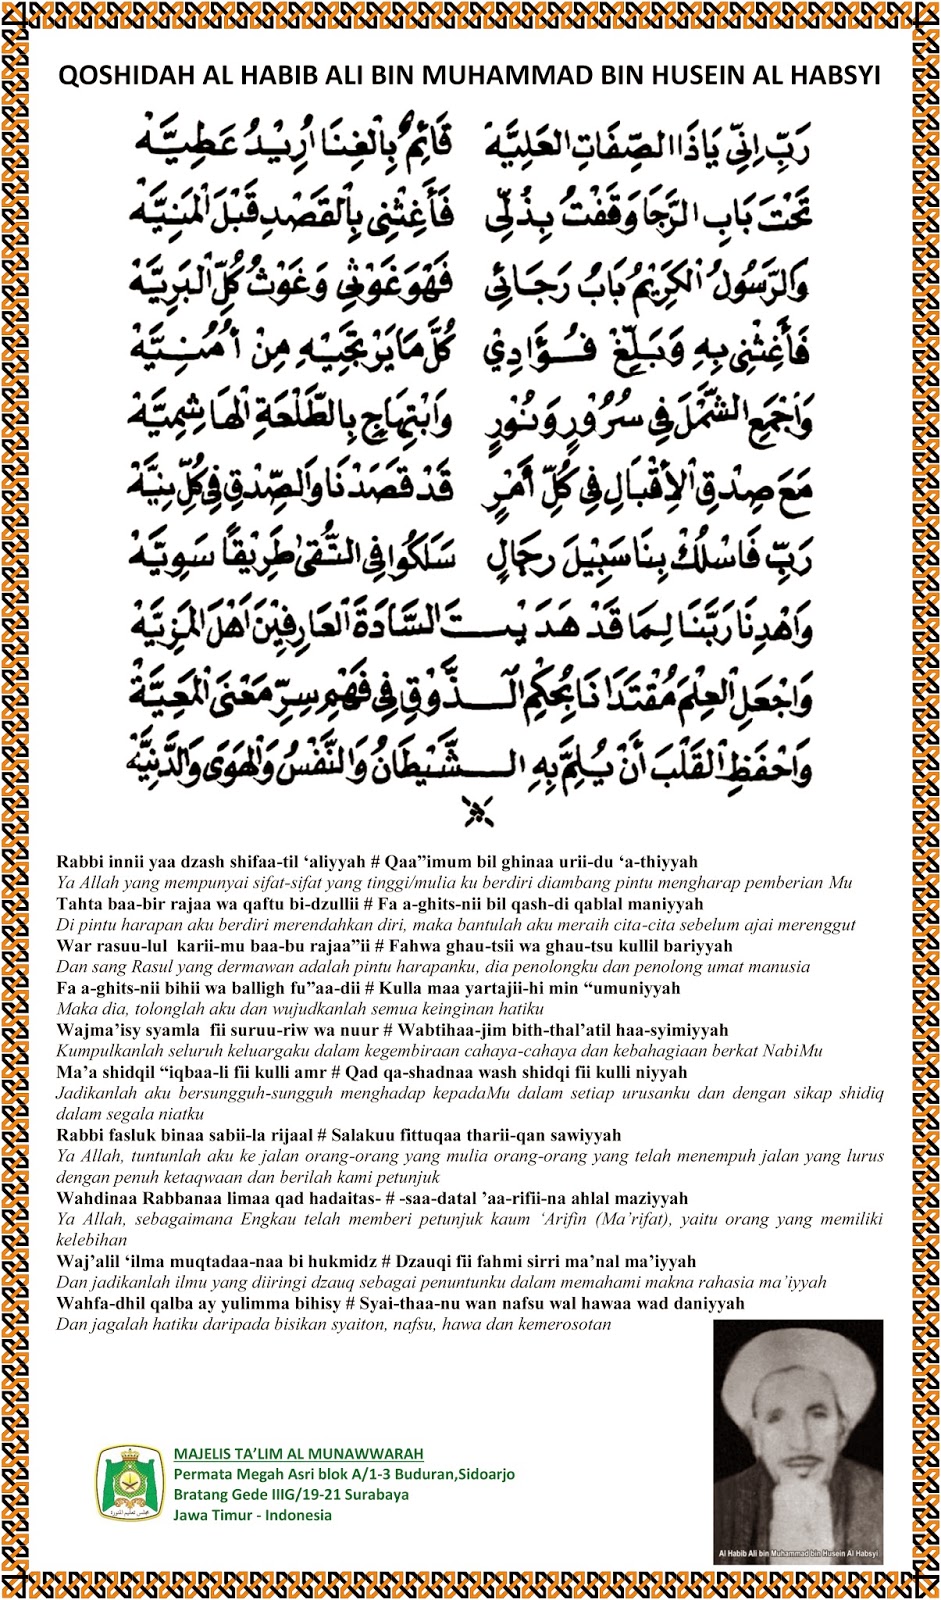 QOSHIDAH AL HABIB ALI BIN MUHAMMAD BIN HUSEIN AL HABSYI
رَبِّ اِنِّي يَاذَا الصِّفَاتِ الْعَلِيَّهْ قَائِمٌ بِالْغِنَا اُرِيْدُ عَطِيَّهْ
تَحْتَ بَابِ الرَّجَا وَقَفْتُ بِذُلِّي فَأَغِثْنِي بِالْقَصْدِ قَبْلَ الْمَنِيَّهْ
وَالرَّسُولُ الْكَرِيْمُ بَابُ رَجَائِي فَهْوَ غَوْثِي وَغَوْثُ كُلِّ الْبَرِيَّهْ
فَأَغِثْنِي بِهِ وَبَلِّغْ فُؤَادِي كُلَّ مَا يَرْتَجِيْهِ مِنْ أُمْنِيَّهْ
وَاجْمَعِ الشَّمْلَ فِي سُرُوْرٍ وَنُوْرٍ وَابْتِهَاجٍ بِالطَّلْعَةِ الْهَاشِمِيَّهْ
مَعَ صِدْقِ الْأِقْبَالِ فِي كُلِّ أَمْرٍ قَدْ قَصَدْنَا وَالصِّدْقِ فِي كُلِّ نِيَّهْ
رَبِّ فَاسْلُكْ بِنَا سَبِيْلَ رِجَالٍ سَلَكُوا فِي التُّقَى طَرِيْقًا سَوِيَّهْ
وَاهْدِنَا رَبَّنَا لِمَا قَدْ هَدَيْتَ السَّادَةَ الْعَارِفِيْنَ اَهْلَ الْمَزِيَّهْ
وَاجْعَلِ الْعِلْمَ مُقْتَدَانَا بِحُكْمِ الـذَّوْقِ فِي فَهْمِ سِرِّ مَعْنَى الْمَعِيَّهْ
وَاحْفَظِ الْقَلْبَ أَنْ يُلِمَّ بِهِ الـشَّيْطَانُ وَالنَّفْسُ وَالْهَوَى وَالدَّنِيَّهْ
Rabbi innii yaa dzash shifaa-til ‘aliyyah # Qaa”imum bil ghinaa urii-du ‘a-thiyyah
Ya Allah yang mempunyai sifat-sifat yang tinggi/mulia ku berdiri diambang pintu mengharap pemberian Mu
Tahta baa-bir rajaa wa qaftu bi-dzullii # Fa a-ghits-nii bil qash-di qablal maniyyah
Di pintu harapan aku berdiri merendahkan diri, maka bantulah aku meraih cita-cita sebelum ajai merenggut
War rasuu-lul karii-mu baa-bu rajaa”ii # Fahwa ghau-tsii wa ghau-tsu kullil bariyyah
Dan sang Rasul yang dermawan adalah pintu harapanku, dia penolongku dan penolong umat manusia
Fa a-ghits-nii bihii wa balligh fu”aa-dii # Kulla maa yartajii-hi min “umuniyyah
Maka dia, tolonglah aku dan wujudkanlah semua keinginan hatiku
Wajma’isy syamla fii suruu-riw wa nuur # Wabtihaa-jim bith-thal’atil haa-syimiyyah
Kumpulkanlah seluruh keluargaku dalam kegembiraan cahaya-cahaya dan kebahagiaan berkat NabiMu
Ma’a shidqil “iqbaa-li fii kulli amr # Qad qa-shadnaa wash shidqi fii kulli niyyah
Jadikanlah aku bersungguh-sungguh menghadap kepadaMu dalam setiap urusanku dan dengan sikap shidiq
dalam segala niatku
Rabbi fasluk binaa sabii-la rijaal # Salakuu fittuqaa tharii-qan sawiyyah
Ya Allah, tuntunlah aku ke jalan orang-orang yang mulia orang-orang yang telah menempuh jalan yang lurus
dengan penuh ketaqwaan dan berilah kami petunjuk
Wahdinaa Rabbanaa limaa qad hadaitas- # -saa-datal ’aa-rifii-na ahlal maziyyah
Ya Allah, sebagaimana Engkau telah memberi petunjuk kaum ‘Arifin (Ma’rifat), yaitu orang yang memiliki
kelebihan
Waj’alil ‘ilma muqtadaa-naa bi hukmidz # Dzauqi fii fahmi sirri ma’nal ma’iyyah
Dan jadikanlah ilmu yang diiringi dzauq sebagai penuntunku dalam memahami makna rahasia ma’iyyah
Wahfa-dhil qalba ay yulimma bihisy # Syai-thaa-nu wan nafsu wal hawaa wad daniyyah
Dan jagalah hatiku daripada bisikan syaiton, nafsu, hawa dan kemerosotan
MAJELIS TA’LIM AL MUNAWWARAH
Permata Megah Asri blok A/1-3 Buduran,Sidoarjo
Bratang Gede IIIG/19-21 Surabaya
Jawa Timur - Indonesia
Al Habib Ali bin Muhammad bin Husein Al Habsyi